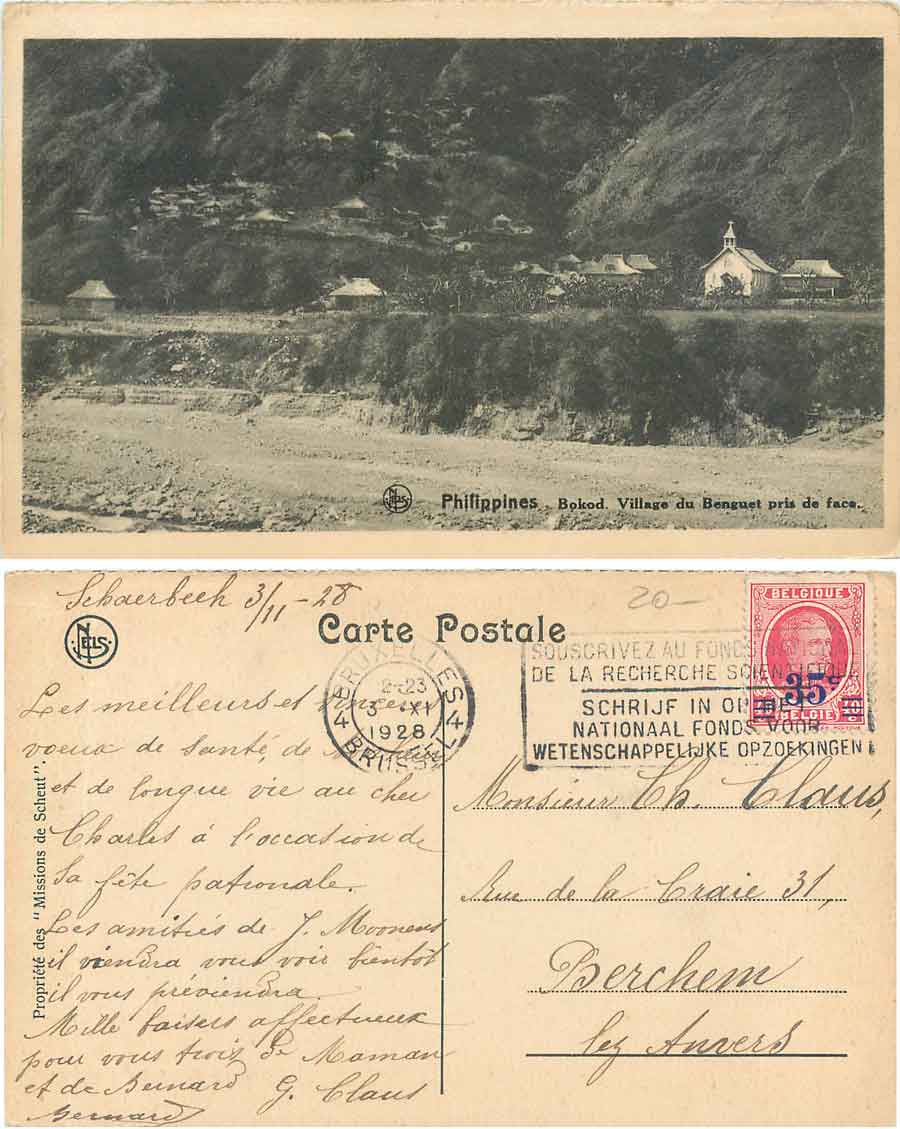 NELS Philippines. Bokod. Village du Benguet pris de face.
Schaerbeek 3/11-28
20-
NELS
Carte Postale
BELGIQUE
35c
BELGIE
BRUXELLES 4
2-23
3 XI
1928
4 BRUSSEL
SOUSCRIVEZ AU FONDS NATIONAL
DE LA RECHERCHE SCIENTIFIQUE
SCHRIJF IN OP HET
NATIONAAL FONDS VOOR
WETENSCHAPPELIJKE OPZOEKINGEN !
Propriété des "Missions de Scheut".
Les meilleurs et sincères
voeux de santé, de bonheur
et de longue vie au cher
Charles à l'occasion de
sa fête patronale.
Les amitiés de J. Moonens
il viendra vous voir bientôt
il vous préviendra
Mille baisers affectueux
pour vous trois de Maman
et de Bernard G. Claus
Bernard
Monsieur Ch. Claus,
Rue de la Craie 31,
Berchem
lez Anvers